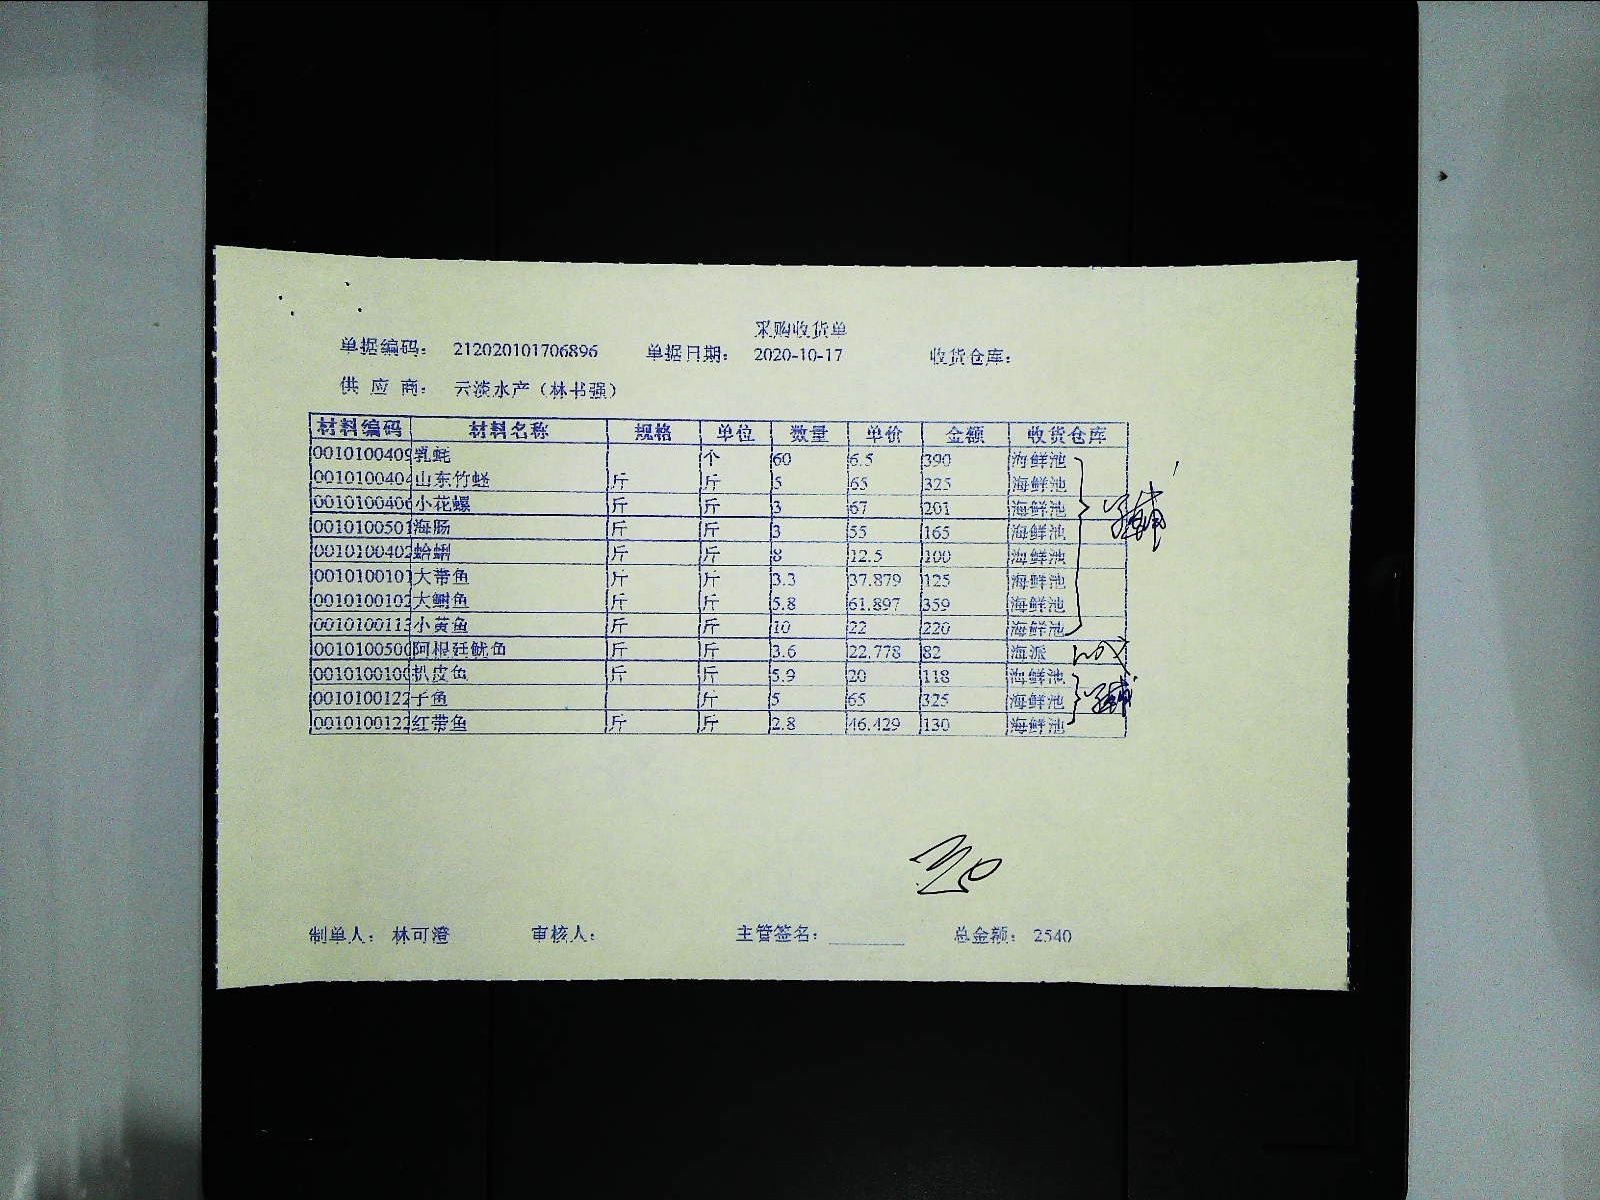 采购收货单
单据编码： 212020101706896 单据日期： 2020-10-17 收货仓库：
供 应 商： 云淡水产（林书强）
材料编码 材料名称 规格 单位 数量 单价 金额 收货仓库
0010100409 乳蚝 个 60 6.5 390 海鲜池
0010100404 山东竹蛏 斤 斤 5 65 325 海鲜池
0010100406 小花螺 斤 斤 3 67 201 海鲜池
0010100501 海肠 斤 斤 3 55 165 海鲜池
0010100402 蛤蜊 斤 斤 8 12.5 100 海鲜池
0010100101 大带鱼 斤 斤 3.3 37.879 125 海鲜池
0010100102 大鲳鱼 斤 斤 5.8 61.897 359 海鲜池
001010011 小黄鱼 斤 斤 10 22 220 海鲜池
0010100500 阿根廷鱿鱼 斤 斤 3.6 22.778 82 海派
0010100100 扒皮鱼 斤 斤 5.9 20 118 海鲜池
0010100122 子鱼 斤 5 65 325 海鲜池
0010100122 红带鱼 斤 斤 2.8 46.429 130 海鲜池
制单人： 林可澄 审核人： 主管签名： 总金额： 2540